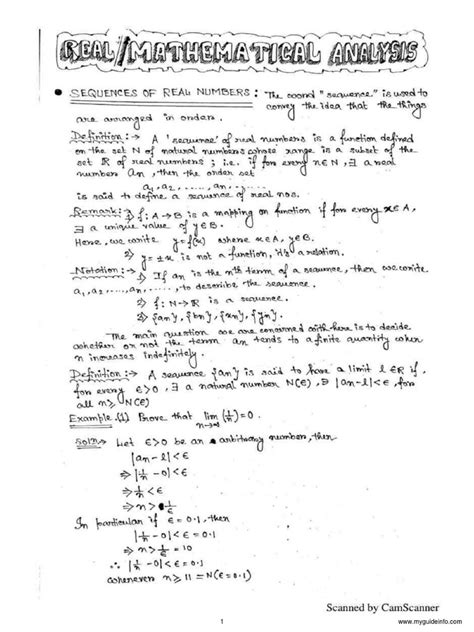 REAL/MATHEMATICAL ANALYSIS
• SEQUENCES OF REAL NUMBERS: The word "sequence" is used to
convey the idea that the things
are arranged in order.
Definition:→ A 'sequence' of real numbers is a function defined
on the set N of natural numbers whose range is a subset of the
set R of real numbers; i.e. if for every n∈N, ∃ a real
number an, then the order set
a₁, a₂, ....., an, .....
is said to define a sequence of real nos.
Remark:→ 1) f: A→B is a mapping or function if for every x∈A,
∃ a unique value of y∈B.
Here, we write y=f(x) where x∈A, y∈B.
2) y=±x is not a function, it's a relation.
Notation:→ 1) If an is the nth term of a sequence, then we write
a₁, a₂, ....., an, ....., to describe the sequence.
2) f: N→R is a sequence.
3) {an}, {bn}, {xn}, {yn}.
The main question we are concerned with here is to decide
whether or not the term an tends to a finite quantity when
n increases indefinitely.
Definition:→ A sequence {an} is said to have a limit l∈R if
for every ε>0, ∃ a natural number N(ε), ∋ |an-l|<ε, for
all n≥N(ε)
Example.(1) Prove that lim n→∞ (1/n)=0.
Soln: Let ε>0 be an arbitrary number, then
|an-l|<ε
⇒ |1/n-0|<ε
⇒ 1/n<ε
⇒ n>1/ε
In particular if ε=0.1, then
|1/n-0|<0.1
⇒ n>1/ε=10
∴ |1/n-0|<0.1
whenever n≥11=N(ε=0.1)
Scanned by CamScanner
1
www.myguideinfo.com